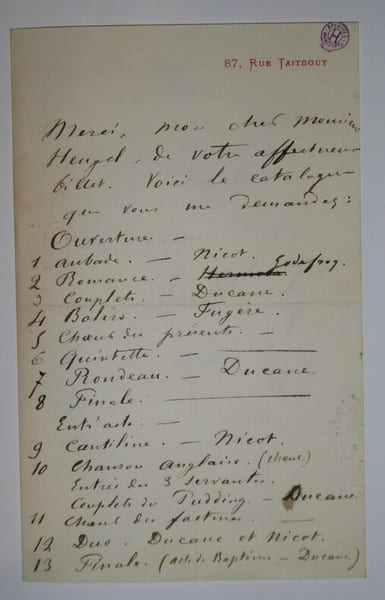 87, RUE TAITBOUT
Merci, mon cher Monsieur
Heugel, de votre affectueux
billet. Voici le catalogue
que vous me demandez :
Ouverture. —
1 Aubade. — Nicot.
2 Romance. — Godefroy.
3 Couplets. — Ducane.
4 Boléro. — Fugère.
5 Chœur des présents. —
6 Quintette. —
7 Rondeau. — Ducane.
8 Finale. —
Entr'acte. —
9 Cantilène. — Nicot.
10 Chanson Anglaise. (chœur.)
Entrée des 3 servantes.
Couplets du Pudding. — Ducane
11 Chœur des facteurs. —
12 Duo. Ducane et Nicot.
13 Finale. (acte de Baptême — Ducane)